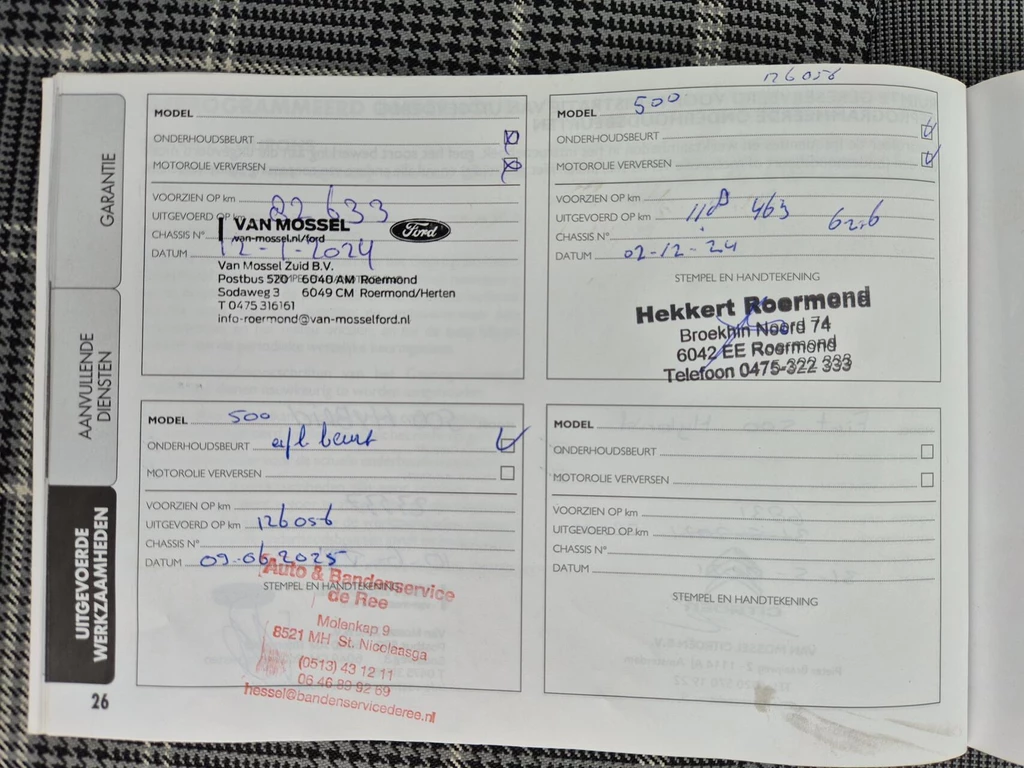 126056
GARANTIE
AANVULLENDE
DIENSTEN
UITGEVOERDE
WERKZAAMHEDEN
26
MODEL
ONDERHOUDSBEURT
MOTOROLIE VERVERSEN
VOORZIEN OP km
UITGEVOERD OP km 82633
CHASSIS N°
DATUM 12-1-2024
VAN MOSSEL Ford
van-mossel.nl/ford
Van Mossel Zuid B.V.
Postbus 520 6040 AM Roermond
Sodaweg 3 6049 CM Roermond/Herten
T 0475 316161
info-roermond@van-mosselford.nl
MODEL 500
ONDERHOUDSBEURT
MOTOROLIE VERVERSEN
VOORZIEN OP km
UITGEVOERD OP km 118 463 6226
CHASSIS N°
DATUM 02-12-24
STEMPEL EN HANDTEKENING
Hekkert Roermond
Broekhin Noord 74
6042 EE Roermond
Telefoon 0475-322 333
MODEL 500
ONDERHOUDSBEURT a/l beurt
MOTOROLIE VERVERSEN
VOORZIEN OP km
UITGEVOERD OP km 126056
CHASSIS N°
DATUM 09-06-2025
STEMPEL EN HANDTEKENING
Auto & Bandenservice
de Ree
Molenkap 9
8521 MH St. Nicolaasga
(0513) 43 12 11
06 46 89 92 69
hessel@bandenservicederee.nl
MODEL
ONDERHOUDSBEURT
MOTOROLIE VERVERSEN
VOORZIEN OP km
UITGEVOERD OP km
CHASSIS N°
DATUM
STEMPEL EN HANDTEKENING